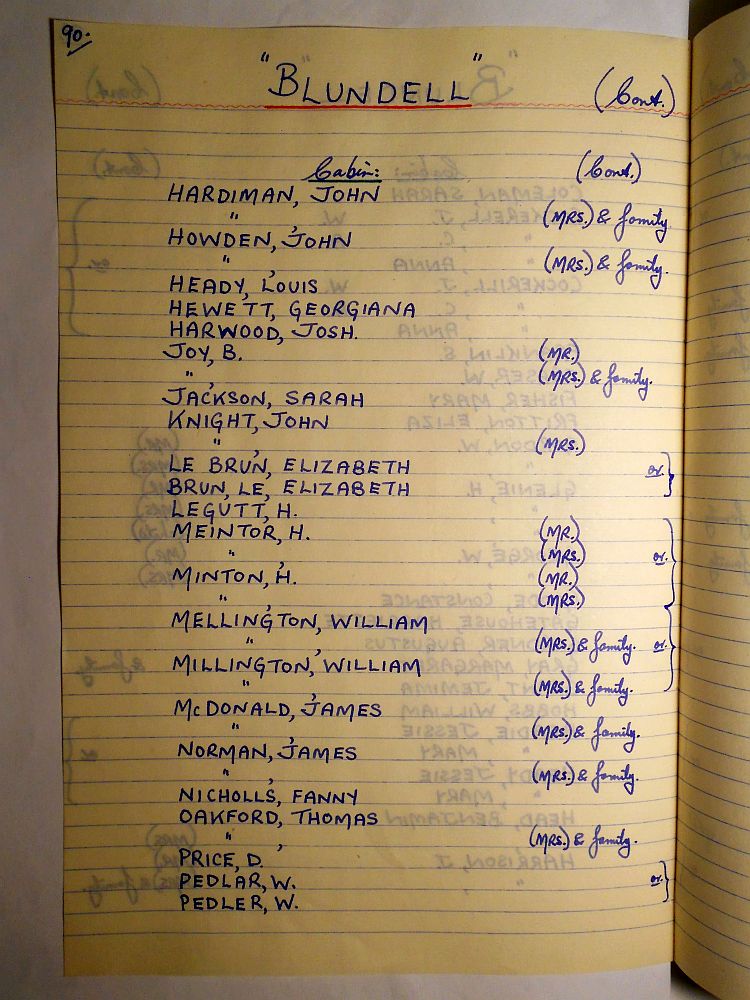 90.
"BLUNDELL" (Cont.)
Cabin: (Cont.)
HARDIMAN, JOHN
" , (MRS.) & family.
HOWDEN, JOHN
" , (MRS.) & family.
HEADY, LOUIS
HEWETT, GEORGIANA
HARWOOD, JOSH.
JOY, B. (MR.)
" , (MRS.) & family.
JACKSON, SARAH
KNIGHT, JOHN
" , (MRS.)
LE BRUN, ELIZABETH or. }
BRUN, LE, ELIZABETH
LEGUTT, H.
MEINTOR, H. (MR.)
" , (MRS.) or. }
MINTON, H. (MR.)
" , (MRS.)
MELLINGTON, WILLIAM
" , (MRS.) & family. or. }
MILLINGTON, WILLIAM
" , (MRS.) & family.
McDONALD, JAMES
" , (MRS.) & family.
NORMAN, JAMES
" , (MRS.) & family.
NICHOLLS, FANNY
OAKFORD, THOMAS
" , (MRS.) & family.
PRICE, D.
PEDLAR, W. or. }
PEDLER, W.